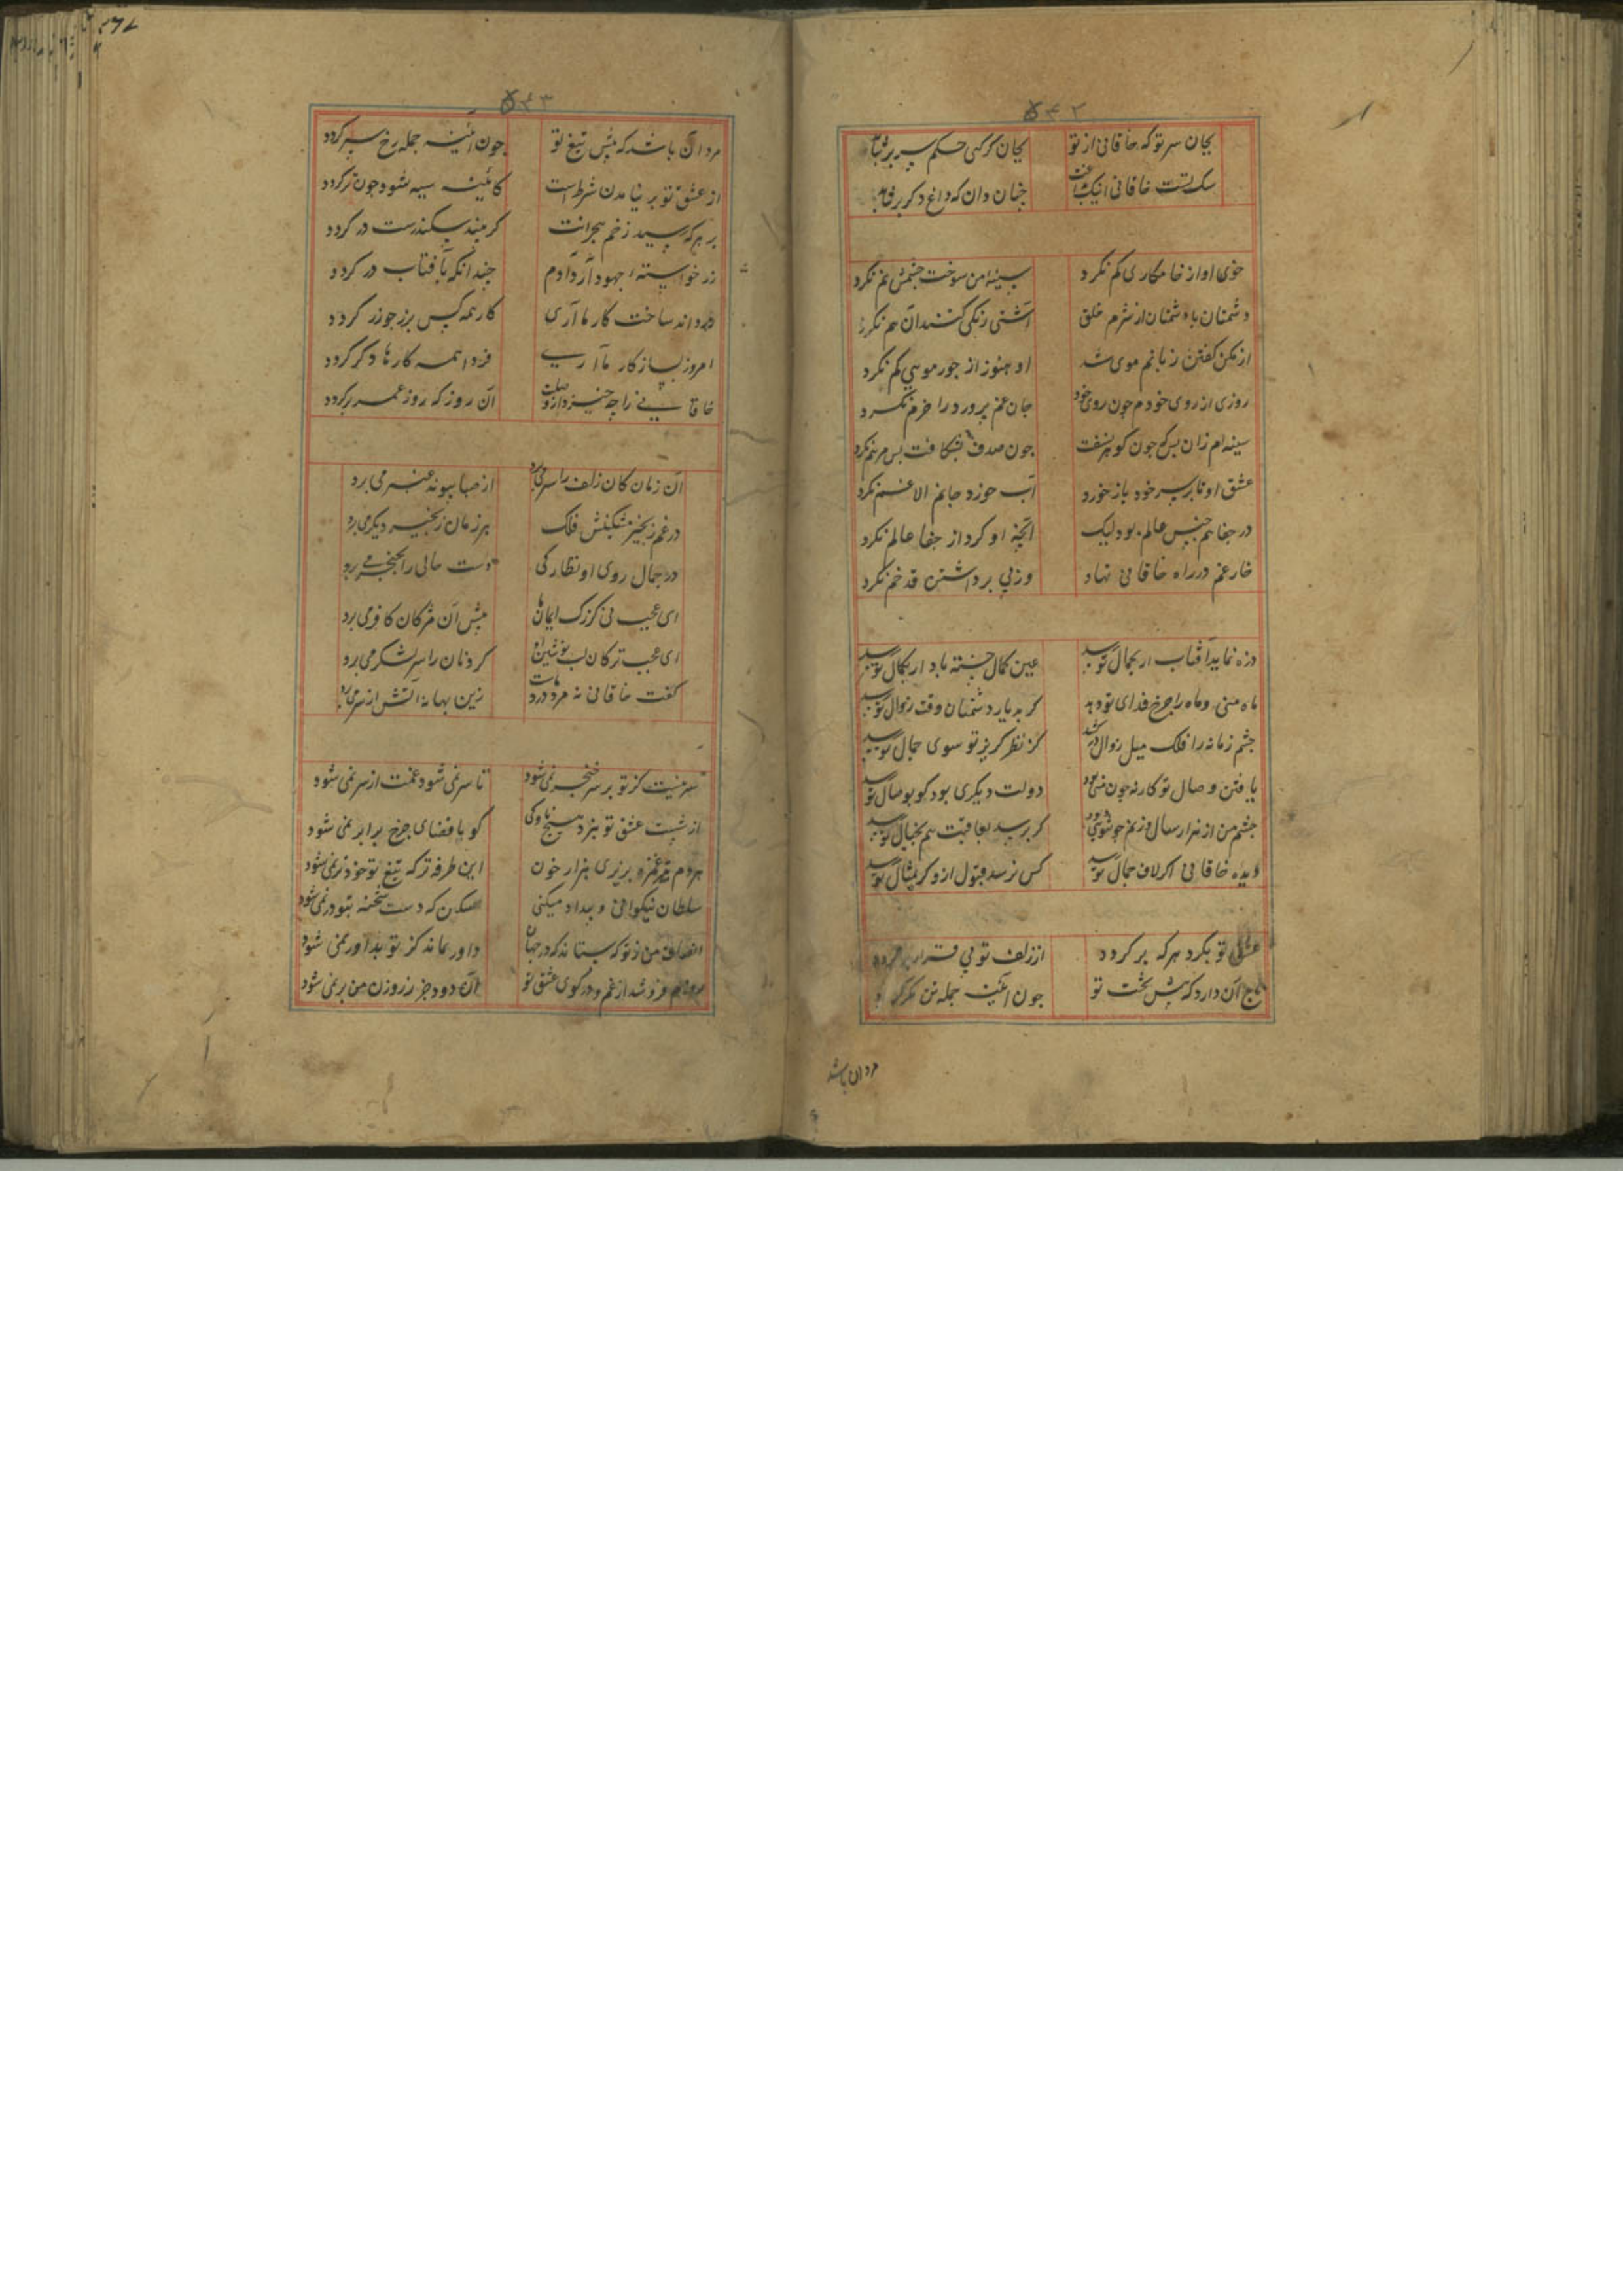 ۵۴۲
بجان سر تو که خاقانی از تو
بجان کر کسی حکم سر برنتابد
سک تست خاقانی اینک
جنان دان که داغ دکر برنتابد
خوی او از خامکاری کم نکرد
سینه من سوخت جشمش نم نکرد
دشمنان با دشمنان از شرم خلق
آشتی رنکی کنند آن هم نکرد
از مکن کفتن زبانم موی شد
او هنوز از جور مویی کم نکرد
روزی از روی خودم جون روی خود
جان غم برورد را خرم نکرد
سینه ام زان بس که جون کوهر بسفت
جون صدف بشکافت بس مرهم نکرد
عشق او تا بر سر خود باز خورد
آب خورد جانم الا غم نکرد
در جفا هم جنس عالم بود لیک
آنجه او کرد از جفا عالم نکرد
خار غم در راه خاقانی نهاد
وز پی برداشتن قد خم نکرد
ذره نماید آفتاب ار بجمال تو رسد
عین کمال خسته باد ار بکمال تو رسد
ماه منی و ماه را جرخ فدای تو دهد
کر به دیار دشمنان وقت زوال تو رسد
جشم زمانه را فلک میل زوال درکشد
کز نظر کزیز تو سوی جمال تو رسد
یافتن وصال تو کار نه جون منی بود
دولت دیکری بود کو بوصال تو رسد
جشم من از هزار سال
کر برسد بعاقبت هم بخیال تو رسد
دیده خاقانی اکر لاف جمال تو رسد
کس نرسد قبول ازو کر بمثال تو رسد
عشق تو بکرد هرکه بر کردد
از زلف تو بی قرارتر کردد
تاج آن دارد که بیش تخت تو
جون آینه جمله تن کمر کردد
مرد آن باشد
۵۴۳
مرد آن باشد که بیش تیغ تو
جون آینه جمله رخ سبر کردد
از عشق تو بر نیامدن شرط است
کآینه سیه شود جون تر کردد
بر هرکه رسید زخم هجرانت
کر سد سکندرست در کردد
زر خواسته
جندانکه بآفتاب در کردد
دیدی که نساخت کار ما آری
کار همه کس بزر جو زر کردد
امروز بساز کار ما آری
فردا همه کارها دکر کردد
خاقانی را جه خیزد از وصلت
آن روز که روز عمر برکردد
آن زمان کان زلف را سر می برد
از صبا بیوند عنبر می برد
در غم زنجیر مشکینش فلک
هر زمان زنجیر دیکر می برد
در جمال روی او نظارکی
دست حالی را بخنجر می برد
ای عجب نی کزرک ایمان ما
بیش آن مژکان کافر می برد
ای عجب ترکان لب نوشین او
کردنان را سر بشکر می برد
کفت خاقانی نه مرد درد ماست
زین بهانه آتش از سر می برد
سر نیست کز تو بر سر خنجر نمی شود
تا سر نمی شود غمت از سر نمی شود
از شست عشق تو نبرد هیج ناوکی
کو با قضای جرخ برابر نمی شود
هر دم بتیر غمزه بریزی هزار خون
این طرفه تر که تیغ تو خود تر نمی شود
سلطان نیکوانی و بیداد میکنی
میکن که دست شحنه بتو درنمی شود
انصاف من ز تو که ستاند که در جهان
داور نماند کز تو بداور نمی شود
فرو شد از غم و در کوی عشق تو
آن دود جز ز روزن من بر نمی شود